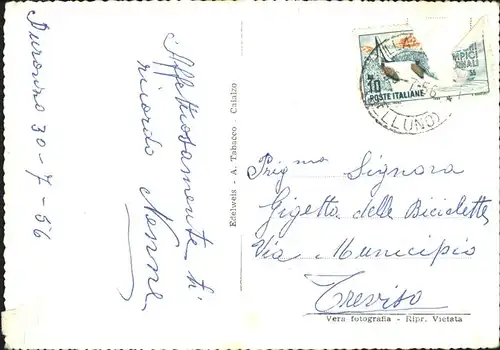 Auronzo 30-7-56
Affettuosamente ti
ricordo
Edelweis - A. Tabacco - Calalzo
10
POSTE ITALIANE
ELLUNO)
Preg.ma Signora
Gigetta delle Biciclette
Via Municipio
Treviso
Vera fotografia - Ripr. Vietata